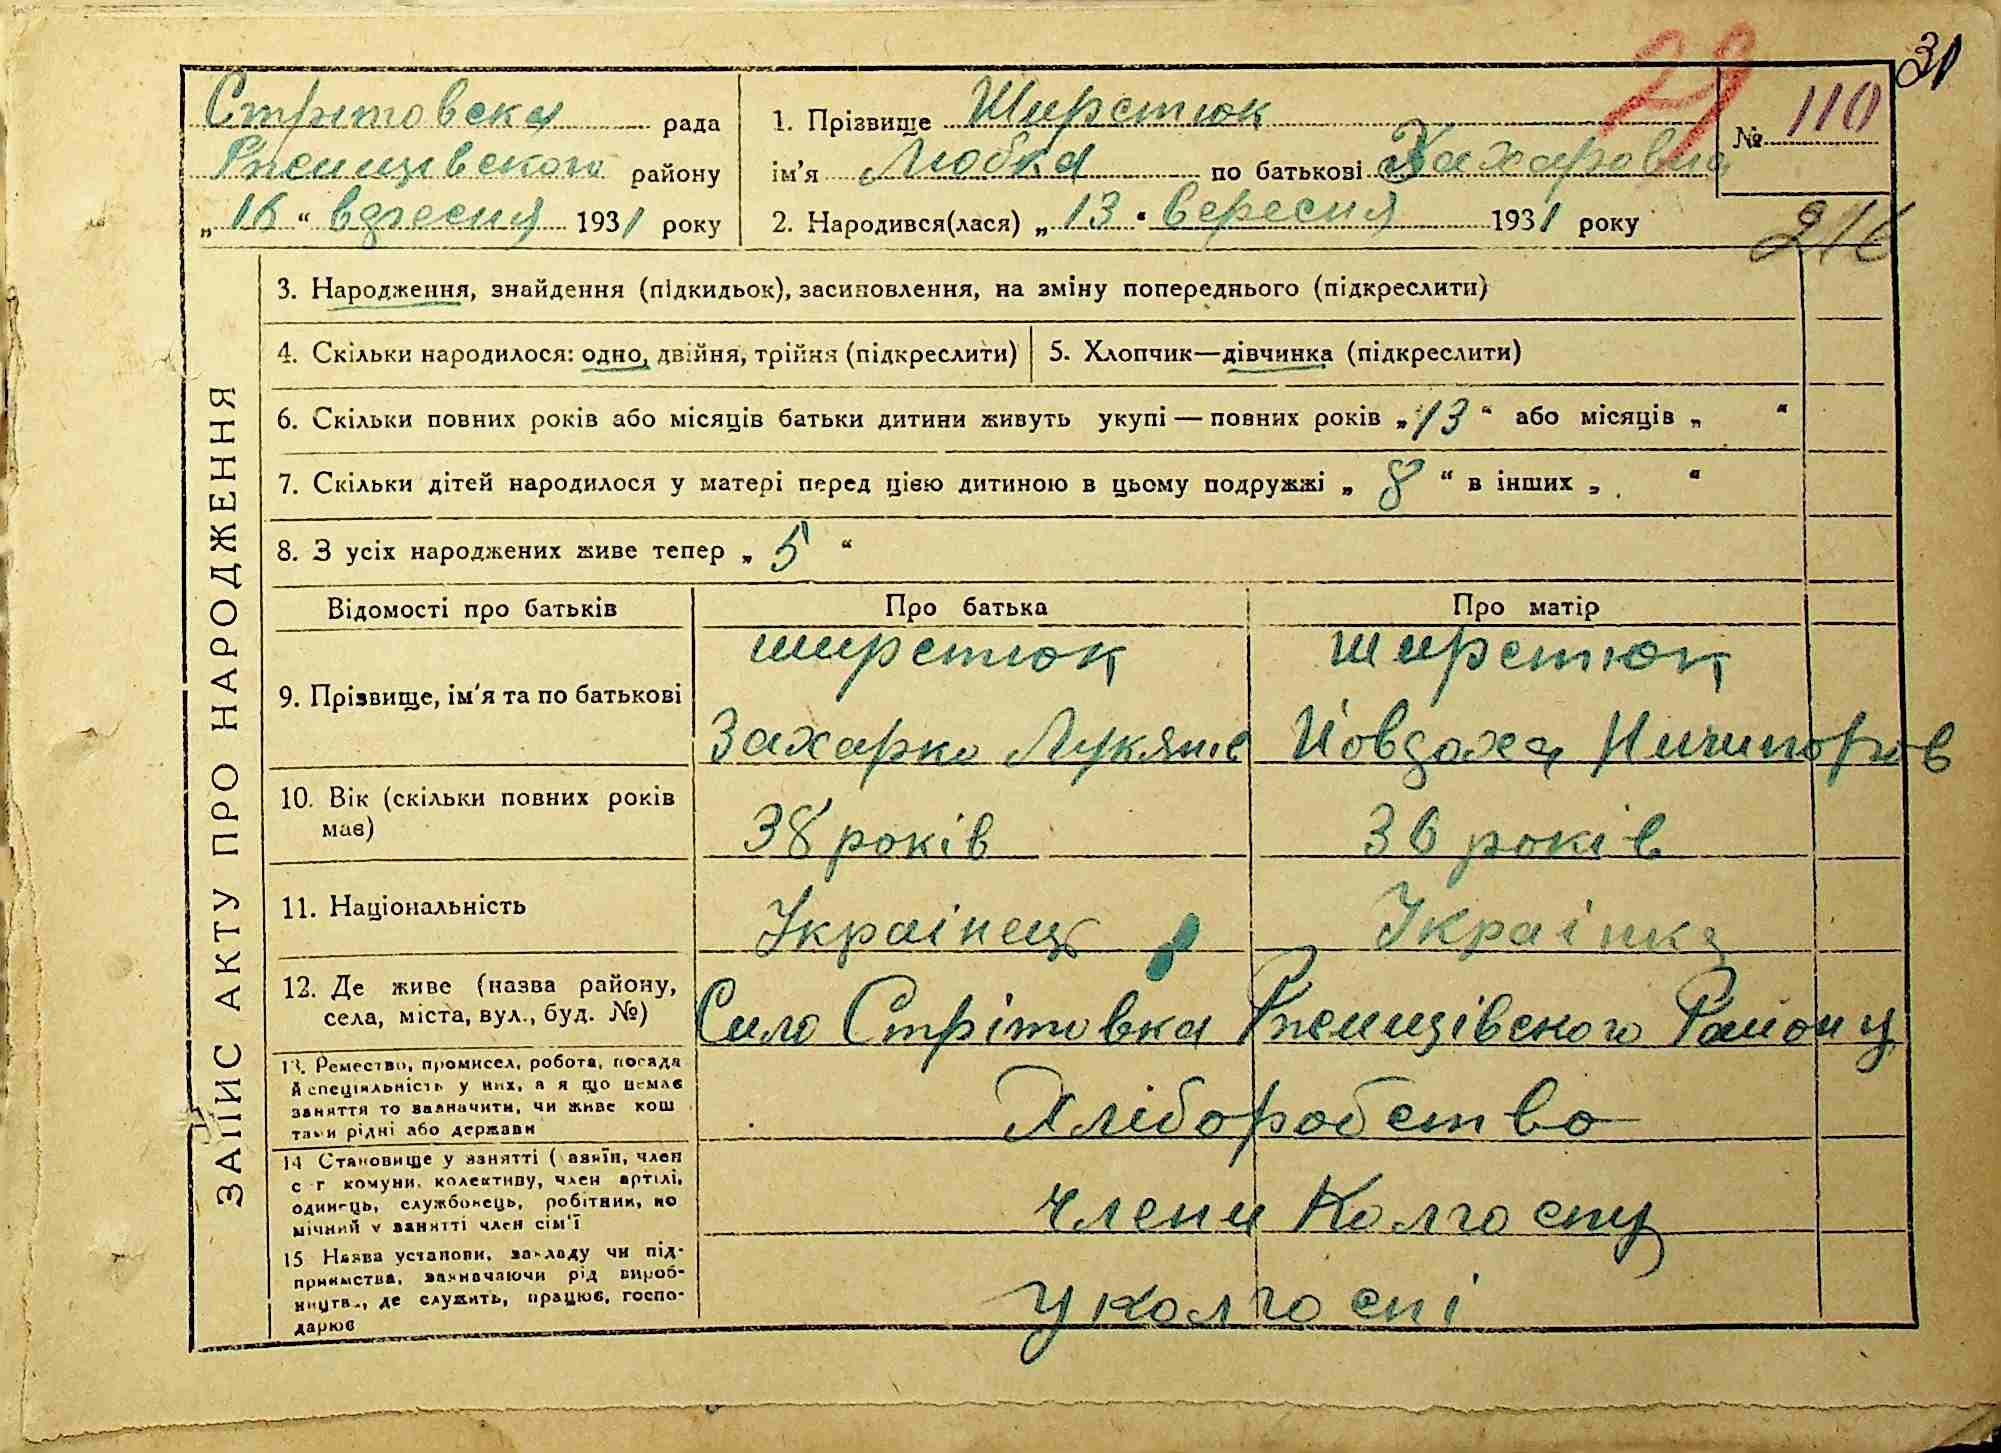 31
29
Стрітовска рада
Ржищівского району
„16“ вдресня 1931 року
1. Прізвище Ширстюк
ім'я Любка по батькові Захаровна
2. Народився(лася) „13“ вересня 1931 року
№ 110
216
ЗАПИС АКТУ ПРО НАРОДЖЕННЯ
3. Народження, знайдення (підкидьок), засиновлення, на зміну попереднього (підкреслити)
4. Скільки народилося: одно, двійня, трійня (підкреслити)
5. Хлопчик—дівчинка (підкреслити)
6. Скільки повних років або місяців батьки дитини живуть укупі — повних років „13“ або місяців „ “
7. Скільки дітей народилося у матері перед цією дитиною в цьому подружжі „8“ в інших „ “
8. З усіх народжених живе тепер „5“
Відомості про батьків
Про батька
Про матір
9. Прізвище, ім'я та по батькові
ширстюк
Захарко Лукянів
ширстюк
Йовдоха Ничипорів
10. Вік (скільки повних років
має)
38 років
36 років
11. Національність
Українець
Українка
12. Де живе (назва району,
села, міста, вул., буд. №)
Село Стрітовка Ржищівского Району
13. Ремество, промисел, робота, посада
й спеціяльність у них, а я що немає
заняття то зазначити, чи живе кош
тами рідні або держави
Хліборобство
14 Становище у занятті (хазяїн, член
с г комуни, колективу, член артілі,
одинець, службовець, робітник, по
мічний у занятті член сім'ї
члени Колгоспу
15 Назва установи, закладу чи під-
приємства, зазначаючи рід вироб-
ництва, де служить, працює, госпо-
дарює
у колгоспі